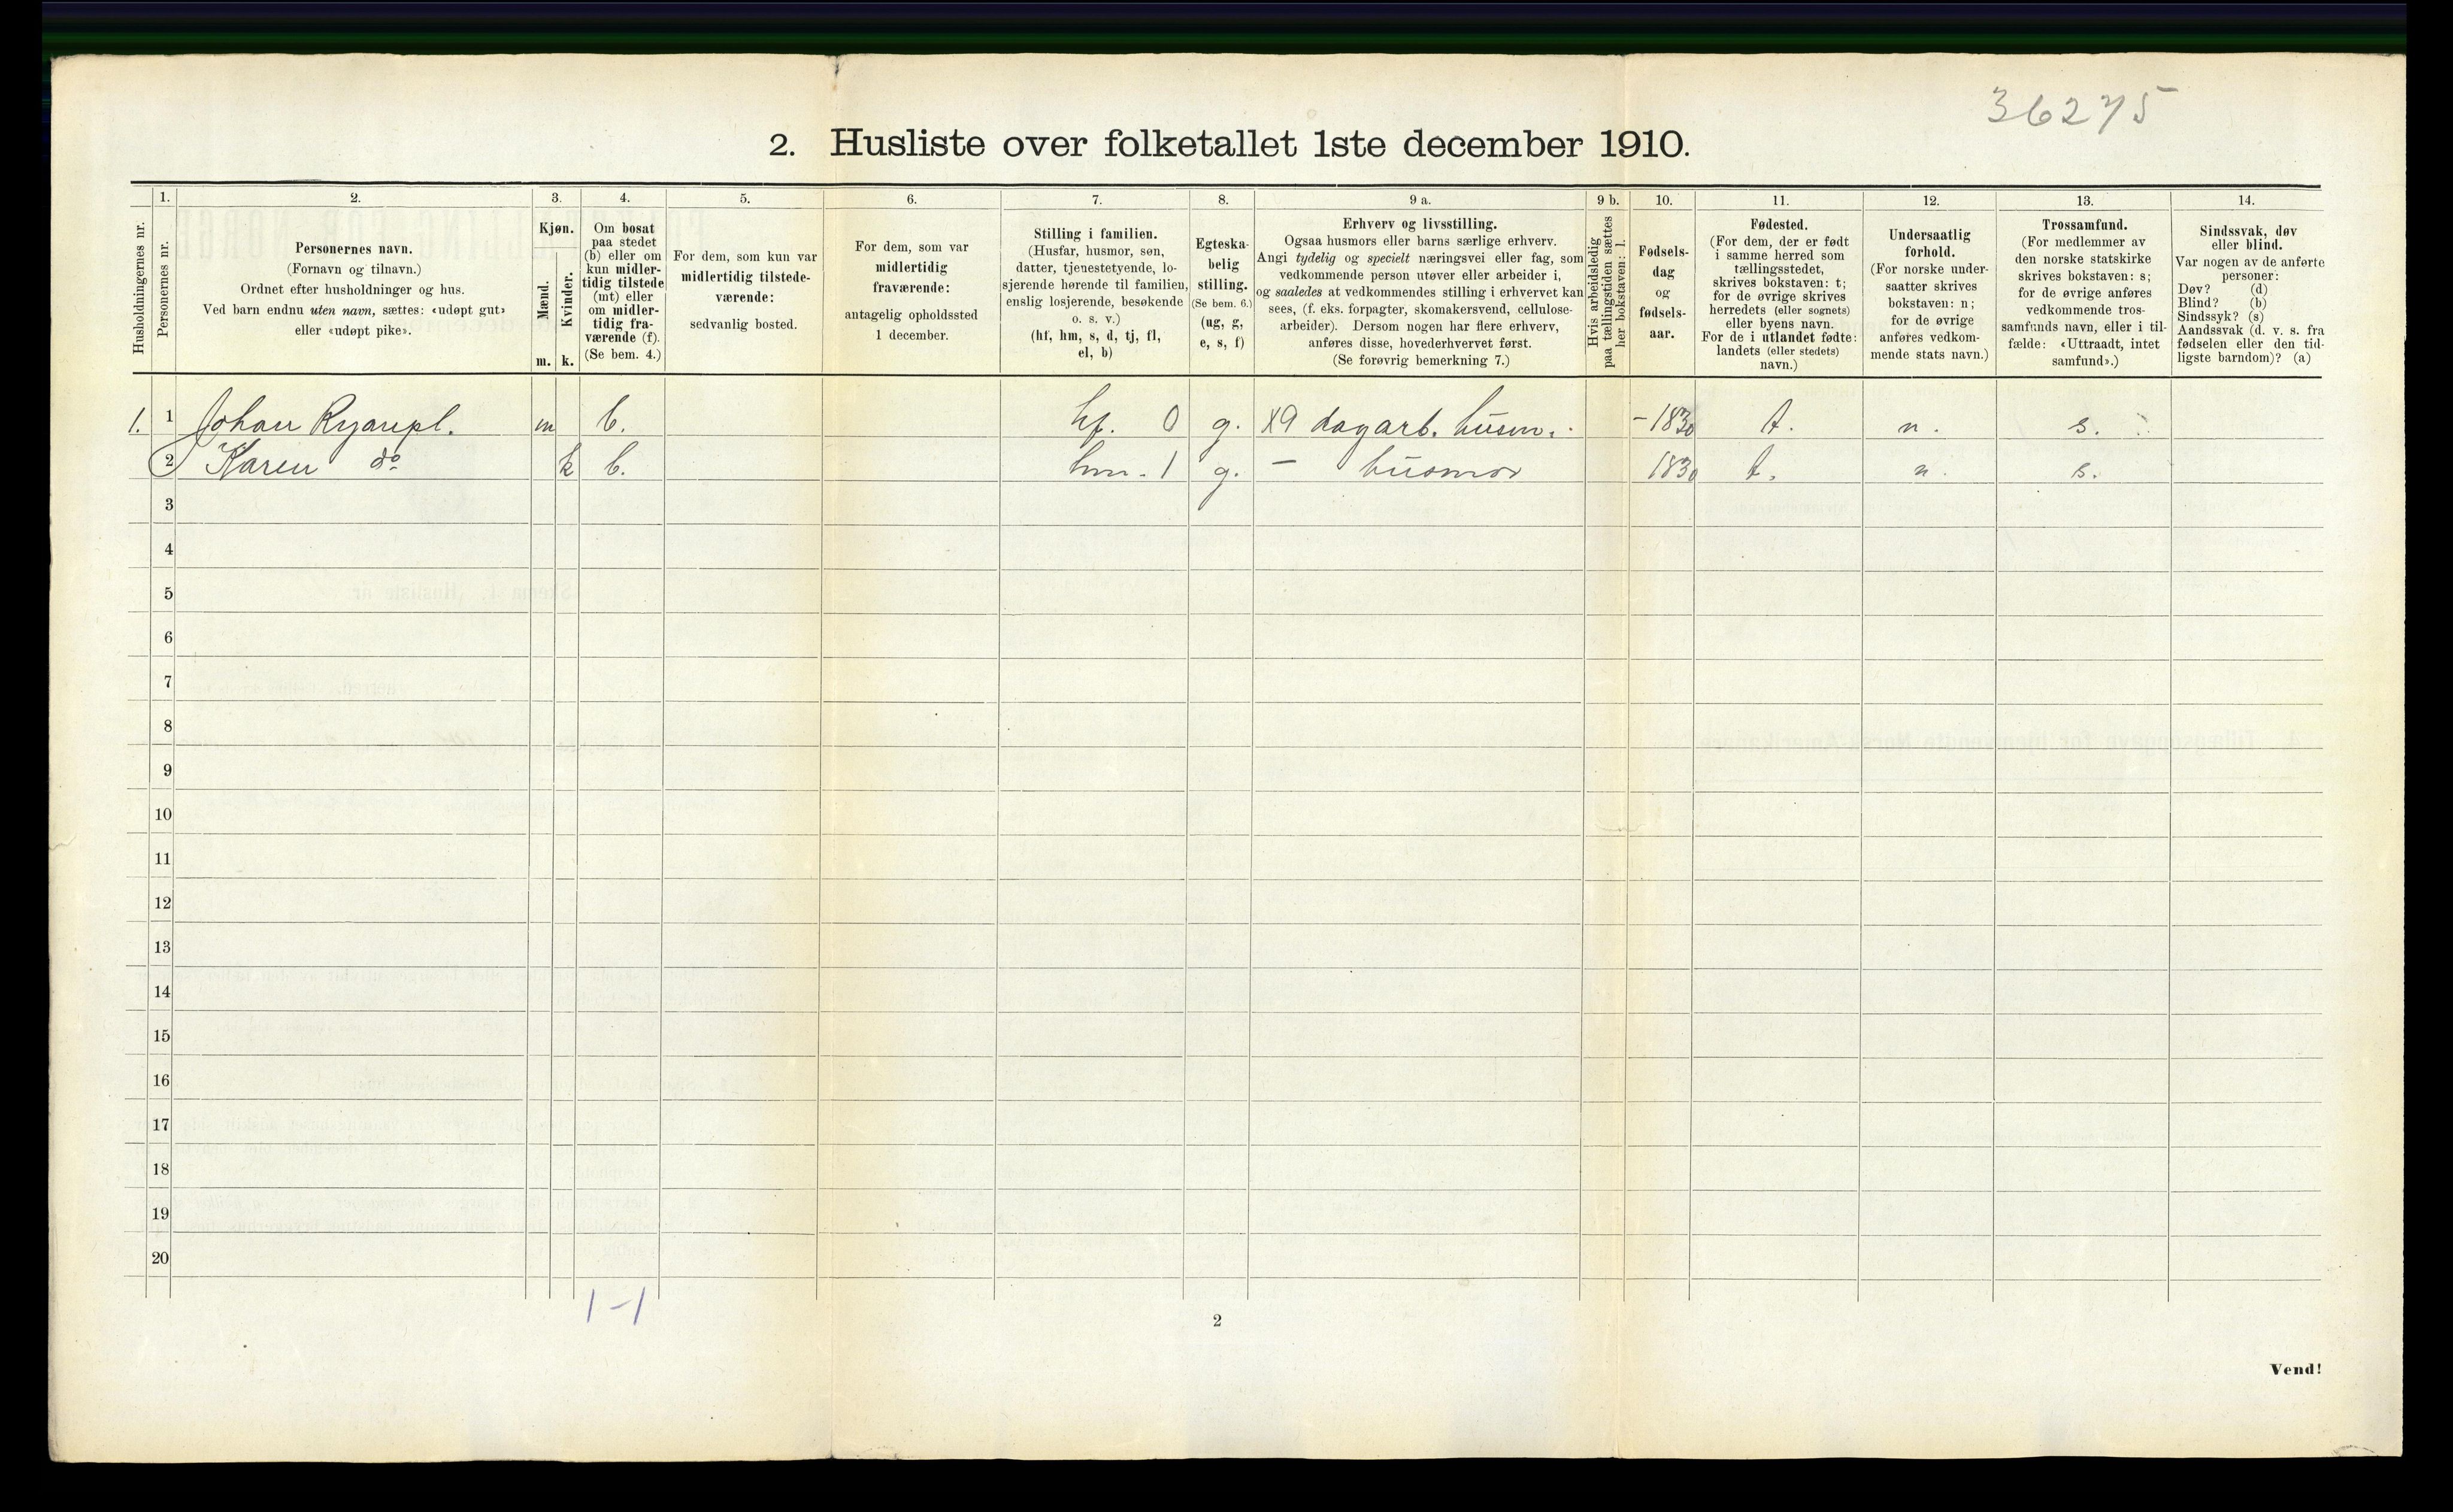 36275
2. Husliste over folketallet 1ste december 1910.
Husholdningernes nr.
1.
Personernes nr.
2.
Personernes navn.
(Fornavn og tilnavn.)
Ordnet efter husholdninger og hus.
Ved barn endnu uten navn, sættes: «udøpt gut»
eller «udøpt pike».
3.
Kjøn.
Mænd.
Kvinder.
m. k.
4.
Om bosat
paa stedet
(b) eller om
kun midler-
tidig tilstede
(mt) eller
om midler-
tidig fra-
værende (f).
(Se bem. 4.)
5.
For dem, som kun var
midlertidig tilstede-
værende:
sedvanlig bosted.
6.
For dem, som var
midlertidig
fraværende:
antagelig opholdssted
1 december.
7.
Stilling i familien.
(Husfar, husmor, søn,
datter, tjenestetyende, lo-
sjerende hørende til familien,
enslig losjerende, besøkende
o. s. v.)
(hf, hm, s, d, tj, fl,
el, b)
8.
Egteska-
belig
stilling.
(Se bem. 6.)
(ug, g,
e, s, f)
9 a.
Erhverv og livsstilling.
Ogsaa husmors eller barns særlige erhverv.
Angi tydelig og specielt næringsvei eller fag, som
vedkommende person utøver eller arbeider i,
og saaledes at vedkommendes stilling i erhvervet kan
sees, (f. eks. forpagter, skomakersvend, cellulose-
arbeider). Dersom nogen har flere erhverv,
anføres disse, hovederhvervet først.
(Se forøvrig bemerkning 7.)
9 b.
Hvis arbeidsledig
paa tællingstiden sættes
her bokstaven: l.
10.
Fødsels-
dag
og
fødsels-
aar.
11.
Fødested.
(For dem, der er født
i samme herred som
tællingsstedet,
skrives bokstaven: t;
for de øvrige skrives
herredets (eller sognets)
eller byens navn.
For de i utlandet fødte:
landets (eller stedets)
navn.)
12.
Undersaatlig
forhold.
(For norske under-
saatter skrives
bokstaven: n;
for de øvrige
anføres vedkom-
mende stats navn.)
13.
Trossamfund.
(For medlemmer av
den norske statskirke
skrives bokstaven: s;
for de øvrige anføres
vedkommende tros-
samfunds navn, eller i til-
fælde: «Uttraadt, intet
samfund».)
14.
Sindssvak, døv
eller blind.
Var nogen av de anførte
personer:
Døv? (d)
Blind? (b)
Sindssyk? (s)
Aandssvak (d. v. s. fra
fødselen eller den tid-
ligste barndom)? (a)
1. 1 Johan m b. hf. 0 g. X9 dagarb. husm. - 1830 t. n. s.
2 Karen do k b. hm. 1 g. - husmor 1830 t. n. s.
3
4
5
6
7
8
9
10
11
12
13
14
15
16
17
18
19
20
1-1
2
Vend!